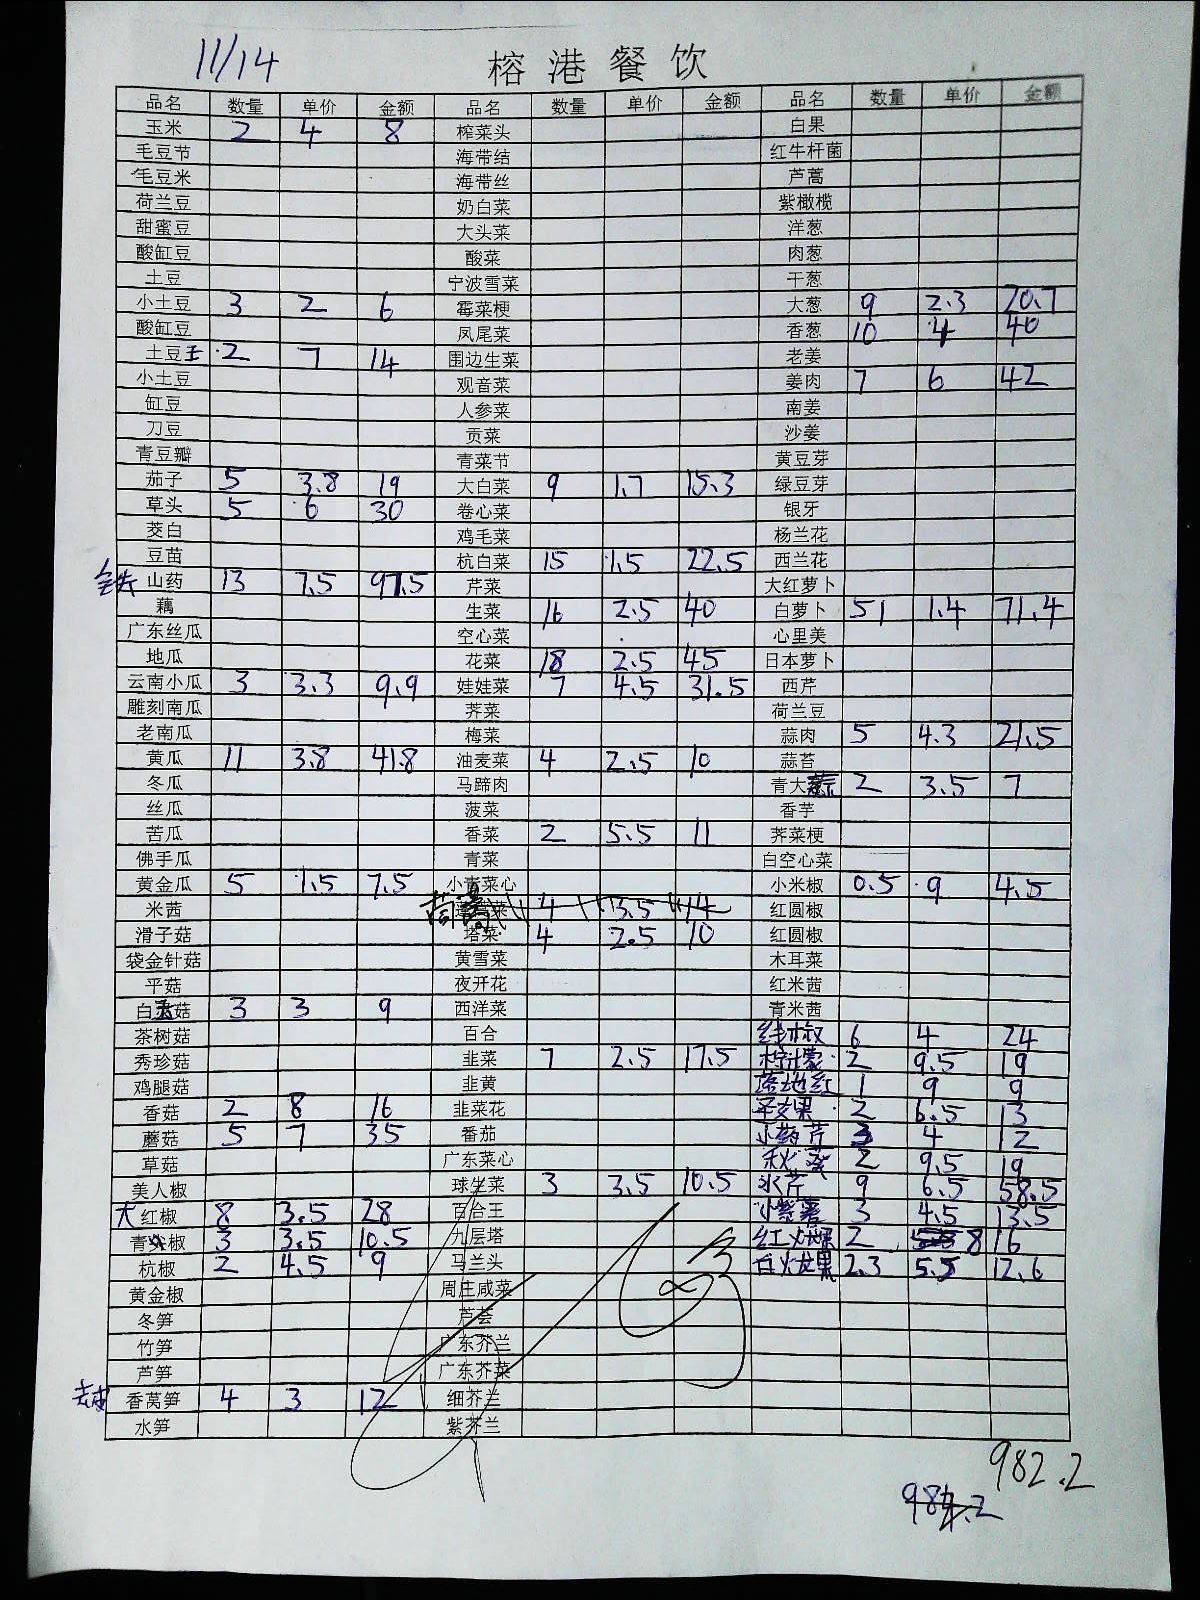 11/14
榕港餐饮
品名 数量 单价 金额 品名 数量 单价 金额 品名 数量 单价 金额
玉米 2 4 8 榨菜头 白果
毛豆节 海带结 红牛杆菌
毛豆米 海带丝 芦蒿
荷兰豆 奶白菜 紫橄榄
甜蜜豆 大头菜 洋葱
酸缸豆 酸菜 肉葱
土豆 宁波雪菜 干葱
小土豆 3 2 6 霉菜梗 大葱 9 2.3 20.7
酸缸豆 凤尾菜 香葱 10 4 40
土豆王 2 7 14 围边生菜 老姜
小土豆 观音菜 姜肉 7 6 42
缸豆 人参菜 南姜
刀豆 贡菜 沙姜
青豆瓣 青菜节 黄豆芽
茄子 5 3.8 19 大白菜 9 1.7 15.3 绿豆芽
草头 5 6 30 卷心菜 银牙
茭白 鸡毛菜 杨兰花
豆苗 杭白菜 15 1.5 22.5 西兰花
铁山药 13 7.5 97.5 芹菜 大红萝卜
藕 生菜 16 2.5 40 白萝卜 51 1.4 71.4
广东丝瓜 空心菜 心里美
地瓜 花菜 18 2.5 45 日本萝卜
云南小瓜 3 3.3 9.9 娃娃菜 7 4.5 31.5 西芹
雕刻南瓜 荠菜 荷兰豆
老南瓜 梅菜 蒜肉 5 4.3 21.5
黄瓜 11 3.8 41.8 油麦菜 4 2.5 10 蒜苔
冬瓜 马蹄肉 青大蒜 2 3.5 7
丝瓜 菠菜 香芋
苦瓜 香菜 2 5.5 11 荠菜梗
佛手瓜 青菜 白空心菜
黄金瓜 5 1.5 7.5 小青菜心 小米椒 0.5 9 4.5
米茜 茼蒿 4 3.5 14 红圆椒
滑子菇 塔菜 4 2.5 10 红圆椒
袋金针菇 黄雪菜 木耳菜
平菇 夜开花 红米茜
白玉菇 3 3 9 西洋菜 青米茜
茶树菇 百合 线椒 6 4 24
秀珍菇 韭菜 7 2.5 17.5 柠檬 2 9.5 19
鸡腿菇 韭黄 落地红 1 9 9
香菇 2 8 16 韭菜花 圣女果 2 6.5 13
蘑菇 5 7 35 番茄 小药芹 3 4 12
草菇 广东菜心 秋葵 2 9.5 19
美人椒 球生菜 3 3.5 10.5 水芹 9 6.5 58.5
大红椒 8 3.5 28 百合王 小紫薯 3 4.5 13.5
青尖椒 3 3.5 10.5 九层塔 红火龙果 2 8 16
杭椒 2 4.5 9 马兰头 白火龙果 2.3 5.5 12.6
黄金椒 周庄咸菜
冬笋 芦荟
竹笋 广东芥兰
芦笋 广东芥菜
去皮香莴笋 4 3 12 细芥兰
水笋 紫芥兰
982.2